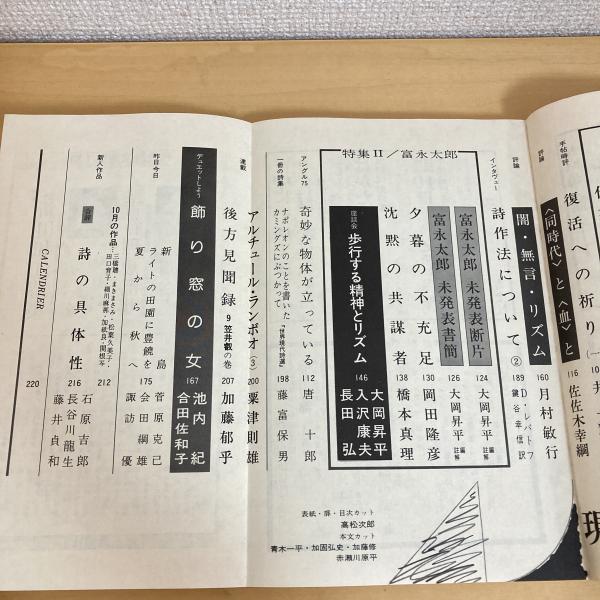 手帖時評
復活への祈り
116
佐佐木幸綱
評論
〈同時代〉と〈血〉と
評論
闇・無言・リズム
160
月村敏行
インタヴュー
詩作法について②
189
D・レバトフ
鍵谷幸信訳
特集II／富永太郎
富永太郎 未発表断片
124
大岡昇平 編註解
富永太郎 未発表書簡
126
大岡昇平 編註解
夕暮の不充足
130
岡田隆彦
沈黙の共謀者
138
橋本真理
座談会
歩行する精神とリズム
146
大岡昇平
入沢康夫
長田弘
アングル75
奇妙な物体が立っている
112
唐十郎
一冊の詩集
ナポレオンのことを書いた
カミングズにぶつかって
『世界現代詩選』
198
藤富保男
連載
アルチュール・ランボオ(3)
200
粟津則雄
後方見聞録
9 笠井叡の巻
207
加藤郁乎
デュエットしよう
飾り窓の女
167
池内紀
合田佐和子
昨日今日
新島
菅原克己
ライトの田園に豊饒を
会田綱雄
夏から秋へ
175
諏訪優
新人作品
10月の作品
212
詩の具体性
216
石原吉郎
長谷川龍生
藤井貞和
CALENDRIER
220
表紙・扉・目次カット
高松次郎
本文カット
青木一平・加固弘史・加藤修
赤瀬川原平
現